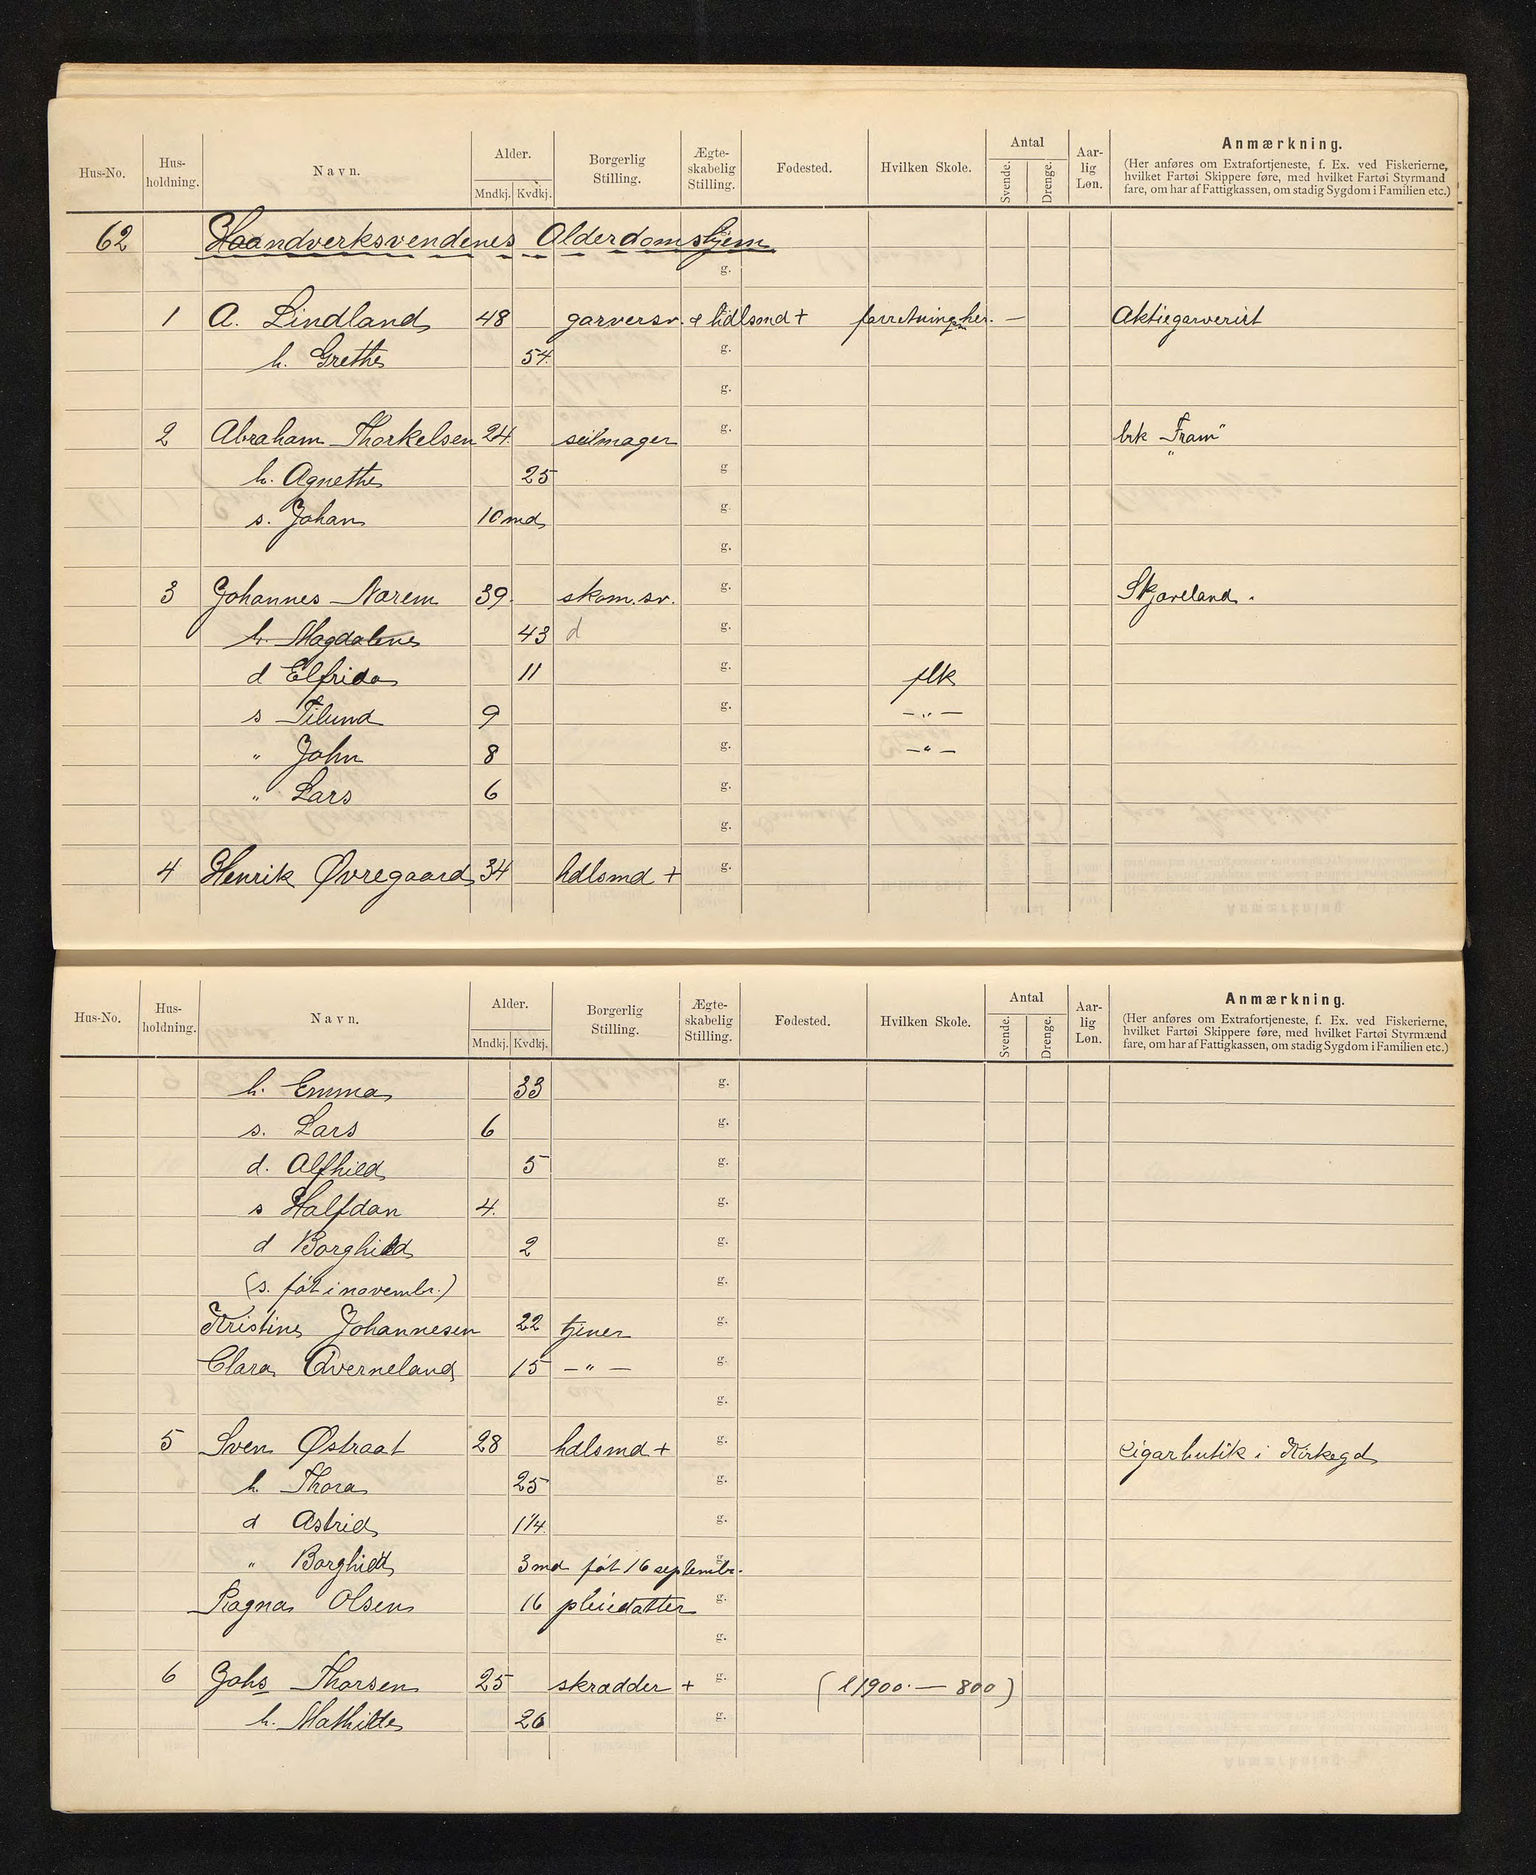 Hus-No. Hus-holdning. Navn. Alder. Mndkj. Kvdkj. Borgerlig Stilling. Ægte-skabelig Stilling. Fødested. Hvilken Skole. Antal Svende. Drenge. Aar-lig Løn. Anmærkning.
(Her anføres om Extrafortjeneste, f. Ex. ved Fiskerierne,
hvilket Fartøi Skippere føre, med hvilket Fartøi Styrmænd
fare, om har af Fattigkassen, om stadig Sygdom i Familien etc.)
62 Haandverksvendenes Alderdomshjem
g.
1 A. Lindland 48 garversv. & hdlsmd + forretning her. — Aktiegarveriet
h. Grethe 54. g.
g.
2 Abraham Thorkelsen 24. seilmager g. brk "Fram"
h. Agnethe 25 g
s. Johan 10 md g.
g.
3 Johannes Narem 39. skom. sv. g. Skjæveland.
h. Magdalene 43 d g.
d Elfrida 11 g. flk
s Tilund 9 g. — " —
" John 8 g. — " —
" Lars 6 g.
g.
4 Henrik Øvregaard 34 hdlsmd + g.
Hus-No. Hus-holdning. Navn. Alder. Mndkj. Kvdkj. Borgerlig Stilling. Ægte-skabelig Stilling. Fødested. Hvilken Skole. Antal Svende. Drenge. Aar-lig Løn. Anmærkning.
(Her anføres om Extrafortjeneste, f. Ex. ved Fiskerierne,
hvilket Fartøi Skippere føre, med hvilket Fartøi Styrmænd
fare, om har af Fattigkassen, om stadig Sygdom i Familien etc.)
h. Emma 33 g.
s. Lars 6 g.
d. Alfhild 5 g.
s Halfdan 4. g.
d Borghild 2 g.
(s. føt i novembr.) g.
Kristine Johannesen 22 tjener g.
Clara Qverneland 15 — " — g.
g.
5 Sven Østraat 28 hdlsmd + g. cigarbutik i Kirkegd
h. Thora 25 g.
d Astrid 1 1/4 g.
" Borghild 3 md føt 16 septembr. g.
Ragna Olsen 16 pleiedatter g.
g.
6 Johs Thorsen 25 skrædder + g. (l 1900. — 800)
h. Mathilde 26 g.